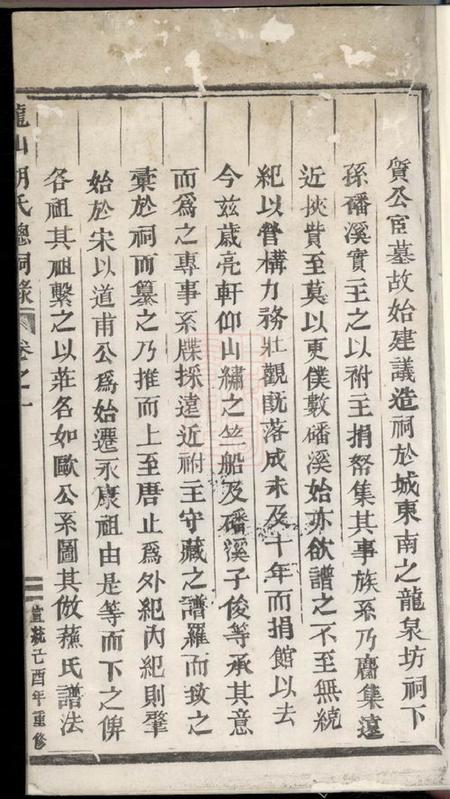 質公宦墓故始建議造祠於城東南之龍泉坊祠下
孫磻溪實主之以祔主捐帑集其事族系乃麕集遠
近挾貲至莫以更僕數磻溪始亦欲譜之不至無統
紀以營構力務壯觀既落成未及十年而捐館以去
今茲歲亮軒仰山繡之竺船及磻溪子俊等承其意
而為之專事系牒採遠近祔主守藏之譜羅而攷之
彙於祠而纂之乃推而上至唐止為外紀內紀則肇
始於宋以道甫公為始遷永康祖由是等而下之俾
各祖其祖繫之以莊名如歐公系圖其倣蘇氏譜法
龍山胡氏總祠錄 卷之一
宣統己酉年重修